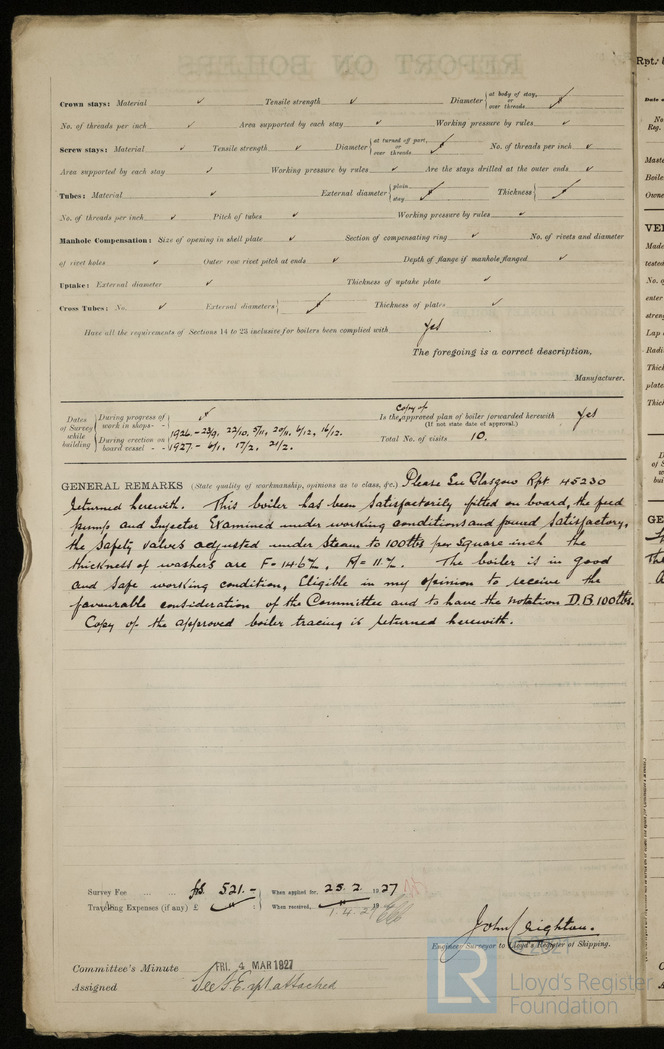 REPORT ON BOILERS
Crown stays: Material ✓ Tensile strength ✓ Diameter { at body of stay, or over threads ✓
No. of threads per inch ✓ Area supported by each stay ✓ Working pressure by rules ✓
Screw stays: Material ✓ Tensile strength ✓ Diameter { at turned off part, or over threads ✓ No. of threads per inch ✓
Area supported by each stay ✓ Working pressure by rules ✓ Are the stays drilled at the outer ends ✓
Tubes: Material ✓ External diameter { plain stay ✓ Thickness { ✓
No. of threads per inch ✓ Pitch of tubes ✓ Working pressure by rules ✓
Manhole Compensation: Size of opening in shell plate ✓ Section of compensating ring ✓ No. of rivets and diameter
of rivet holes ✓ Outer row rivet pitch at ends ✓ Depth of flange if manhole flanged ✓
Uptake: External diameter ✓ Thickness of uptake plate ✓
Cross Tubes: No. ✓ External diameters { ✓ Thickness of plates ✓
Have all the requirements of Sections 14 to 23 inclusive for boilers been complied with Yes
The foregoing is a correct description,
Manufacturer.
Dates of Survey while building { During progress of work in shops - - ✓
1926. - 23/9, 22/10, 5/11, 20/11, 6/12, 16/12.
During erection on board vessel - - 1927. - 6/1, 17/2, 21/2.
Is the Copy of approved plan of boiler forwarded herewith Yes
(If not state date of approval.)
Total No. of visits 10.
GENERAL REMARKS (State quality of workmanship, opinions as to class, &c.) Please See Glasgow Rpt 45230
returned herewith. This boiler has been satisfactorily fitted on board, the feed
pump and Injector Examined under working conditions and found satisfactory,
the safety valves adjusted under steam to 100lbs per square inch the
thickness of washers are F = 14.6%, A = 11.%. The boiler is in good
and safe working condition, Eligible in my opinion to receive the
favourable consideration of the Committee and to have the notation D.B. 100lbs.
Copy of the approved boiler tracing is returned herewith.
Survey Fee ... ... 521. - When applied for, 25. 2. 1927
Travelling Expenses (if any) £ " : When received, 1.4.27 19
John Creighton.
Engineer Surveyor to Lloyd's Register of Shipping.
Committee's Minute FRI. 4 MAR 1927
Assigned See F.E. rpt attached
LR Lloyd's Register
Foundation